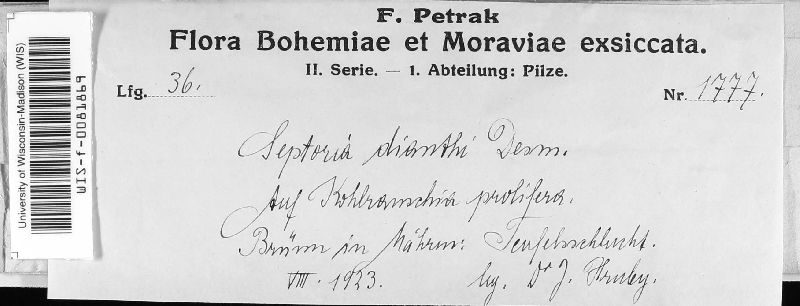 F. Petrak
Flora Bohemiae et Moraviae exsiccata.
II. Serie. — 1. Abteilung: Pilze.
Lfg. 36.
Nr. 1777.
Septoria dianthi Desm.
Auf Kohlrauschia prolifera.
Brünn in Mähren: Teufelsschlucht.
VIII. 1923. lg. Dr J. Hruby.
University of Wisconsin-Madison (WIS)
WIS-f-0081869